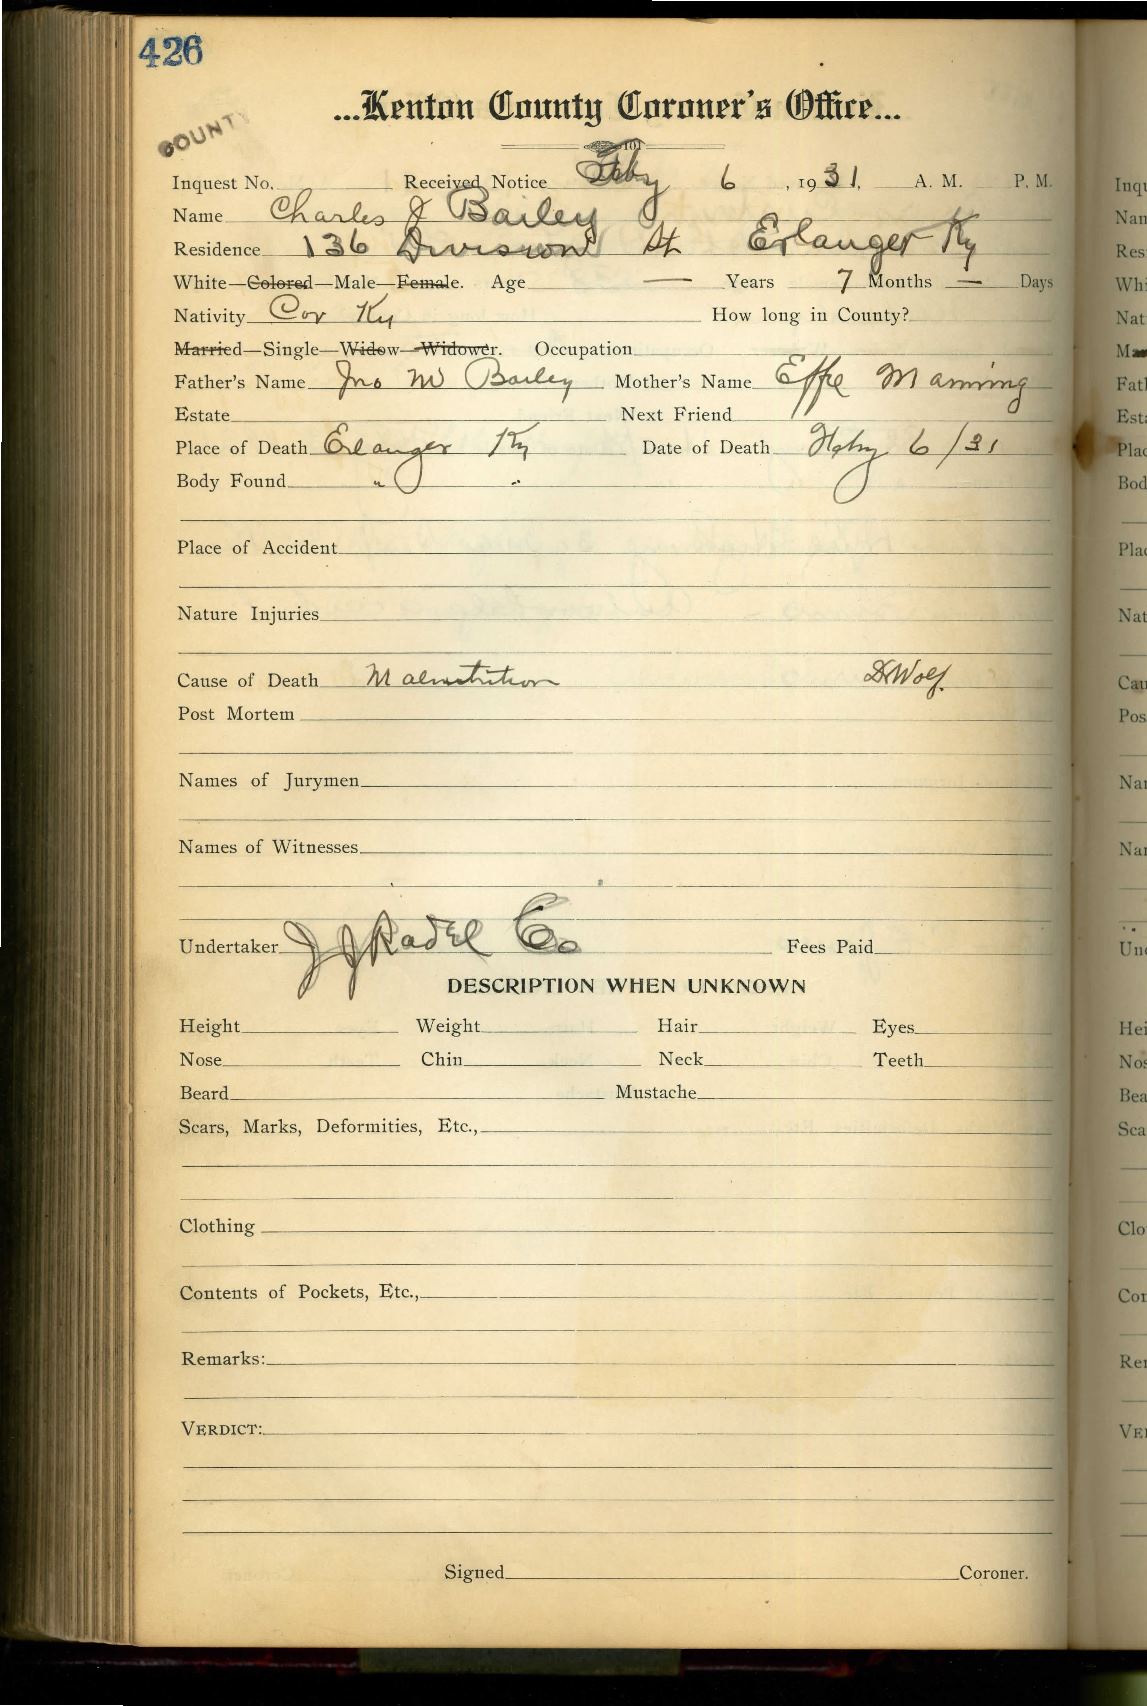 426
...Kenton County Coroner's Office...
COUNTY
Inquest No. Received Notice Feby 6, 1931, A. M. P. M.
Name Charles J Bailey
Residence 136 Division St Erlanger Ky
White—Colored—Male—Female. Age — Years 7 Months — Days
Nativity Cov Ky How long in County?
Married—Single—Widow—Widower. Occupation
Father's Name Jno M Bailey Mother's Name Effie Manning
Estate Next Friend
Place of Death Erlanger Ky Date of Death Feby 6/31
Body Found " "
Place of Accident
Nature Injuries
Cause of Death Malnutrition Dr Wolf.
Post Mortem
Names of Jurymen
Names of Witnesses
Undertaker J J Radel Co Fees Paid
DESCRIPTION WHEN UNKNOWN
Height Weight Hair Eyes
Nose Chin Neck Teeth
Beard Mustache
Scars, Marks, Deformities, Etc.,
Clothing
Contents of Pockets, Etc.,
Remarks:
VERDICT:
Signed Coroner.